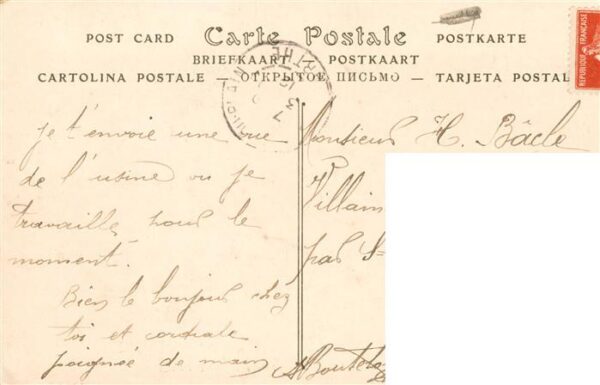 POST CARD Carte Postale POSTKARTE
BRIEFKAART — POSTKAART
CARTOLINA POSTALE — ОТКРЫТОЕ ПИСЬМО — TARJETA POSTAL
REPUBLIQUE FRANÇAISE
3 - 7
je t'envoie une vue
de l'usine ou je
travaille pour le
moment.
Bien le bonjour chez
toi et cordiale
poignée de main
Monsieur H. Bâcle
Villain
par S